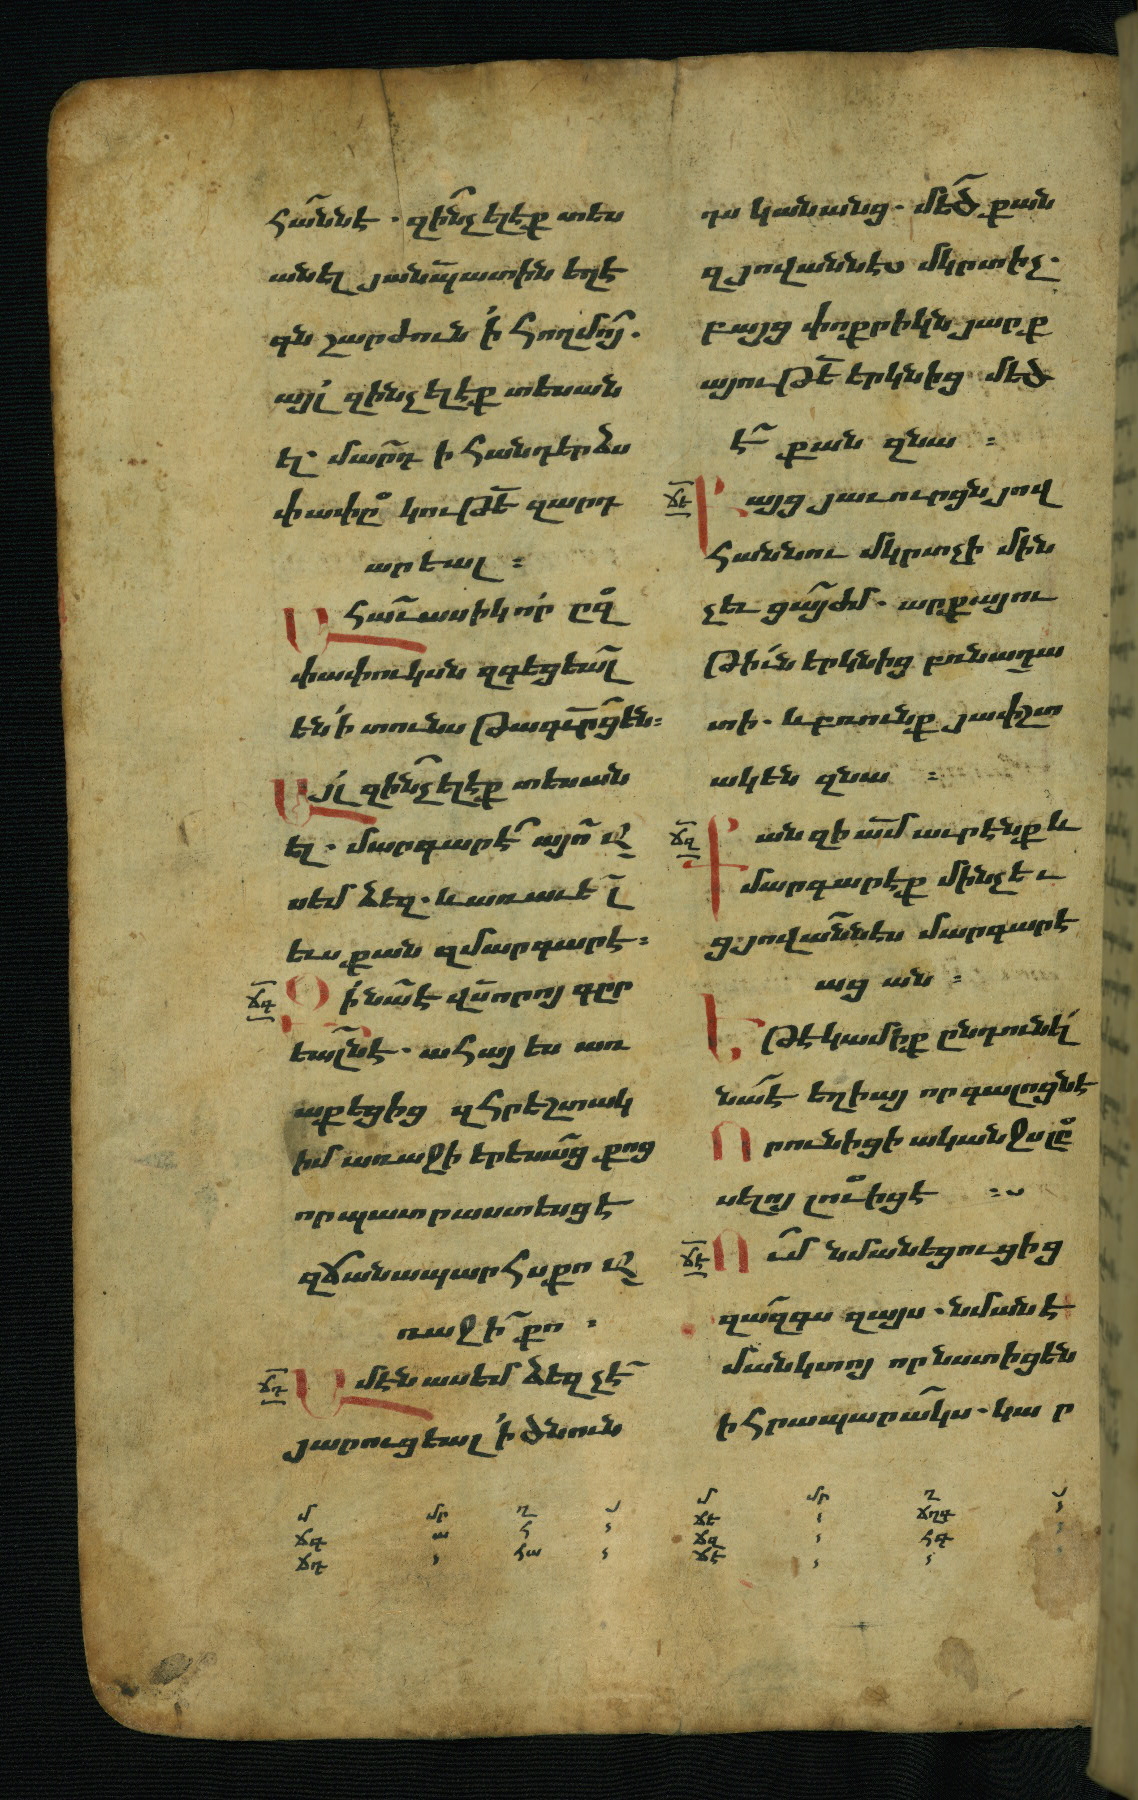 հաննէ. զինչ ելէք տես
անել յանապատին եղէ
գն շարժուն ի հողմոյ.
այլ զինչ ելէք տեսան
ել. մարդ ի հանդերձս
փափըկութե զարդ
արեալ :
Ահաւասիկ որ ըզ
փափուկսն զգեցեալ
են ի տունս թագւրցեն:
Այլ զինչ ելէք տեսան
ել. մարգարէ այո ա
սեմ ձեզ. և առաւել
ևս քան զմարգարէ:
ճգ Զի նա է վս որոյ գըր
եալնէ. ահայ ես առ
աքեցից զհրեշտակ
իմ առաջի երեսաց քոց
որ պատրաստեսցէ
զճանապարհս քո ա
ռաջի քո :
ճդ Ամէն ասեմ ձեզ չէ
յարուցեալ ի ծնուն
մ մր ղ յ
ճգ ա հ
ճդ հա
դս կանանց. մեծ քան
զյովաննէս մկրտիչ.
բայց փոքրիկն յարք
այութե երկնից մեծ
է քան զնա :
ճե Բայց յաւուրցն յով
հաննու մկրտչի մին
չեւ ցայժմ. արքայու
թիւն երկնից բռնադա
տի. և բռունք յափշտ
ակեն զնա :
ճզ Քանզի ամ աւրէնք և
մարգարէք մինչեւ
ց յովաննէս մարգարէ
ացան :
Եթէ կամիք ընդունել
նա է եղիայ որ գալոցնէ
Որ ունիցի ականջս լը
սելոյ լուիցէ :
ճէ Ում նմանեցուցից
զազգս զայս. նման է
մանկտոյ որ նստիցեն
ի հրապարակս. կար
մ մր ղ յ
ճե ճղգ
ճզ հգ
ճէ